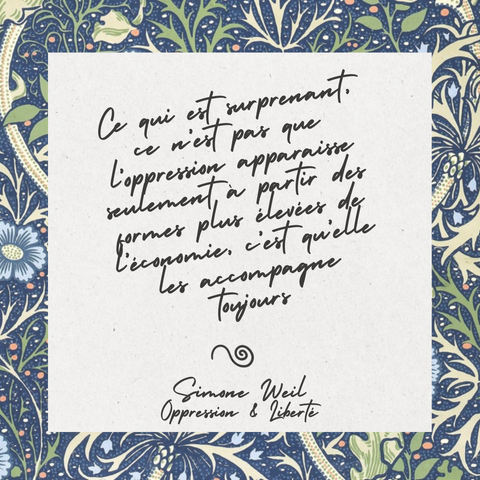 Ce qui est surprenant,
ce n'est pas que
l'oppression apparaisse
seulement à partir des
formes plus élevées de
l'économie, c'est qu'elle
les accompagne
toujours
Simone Weil
Oppression & Liberté